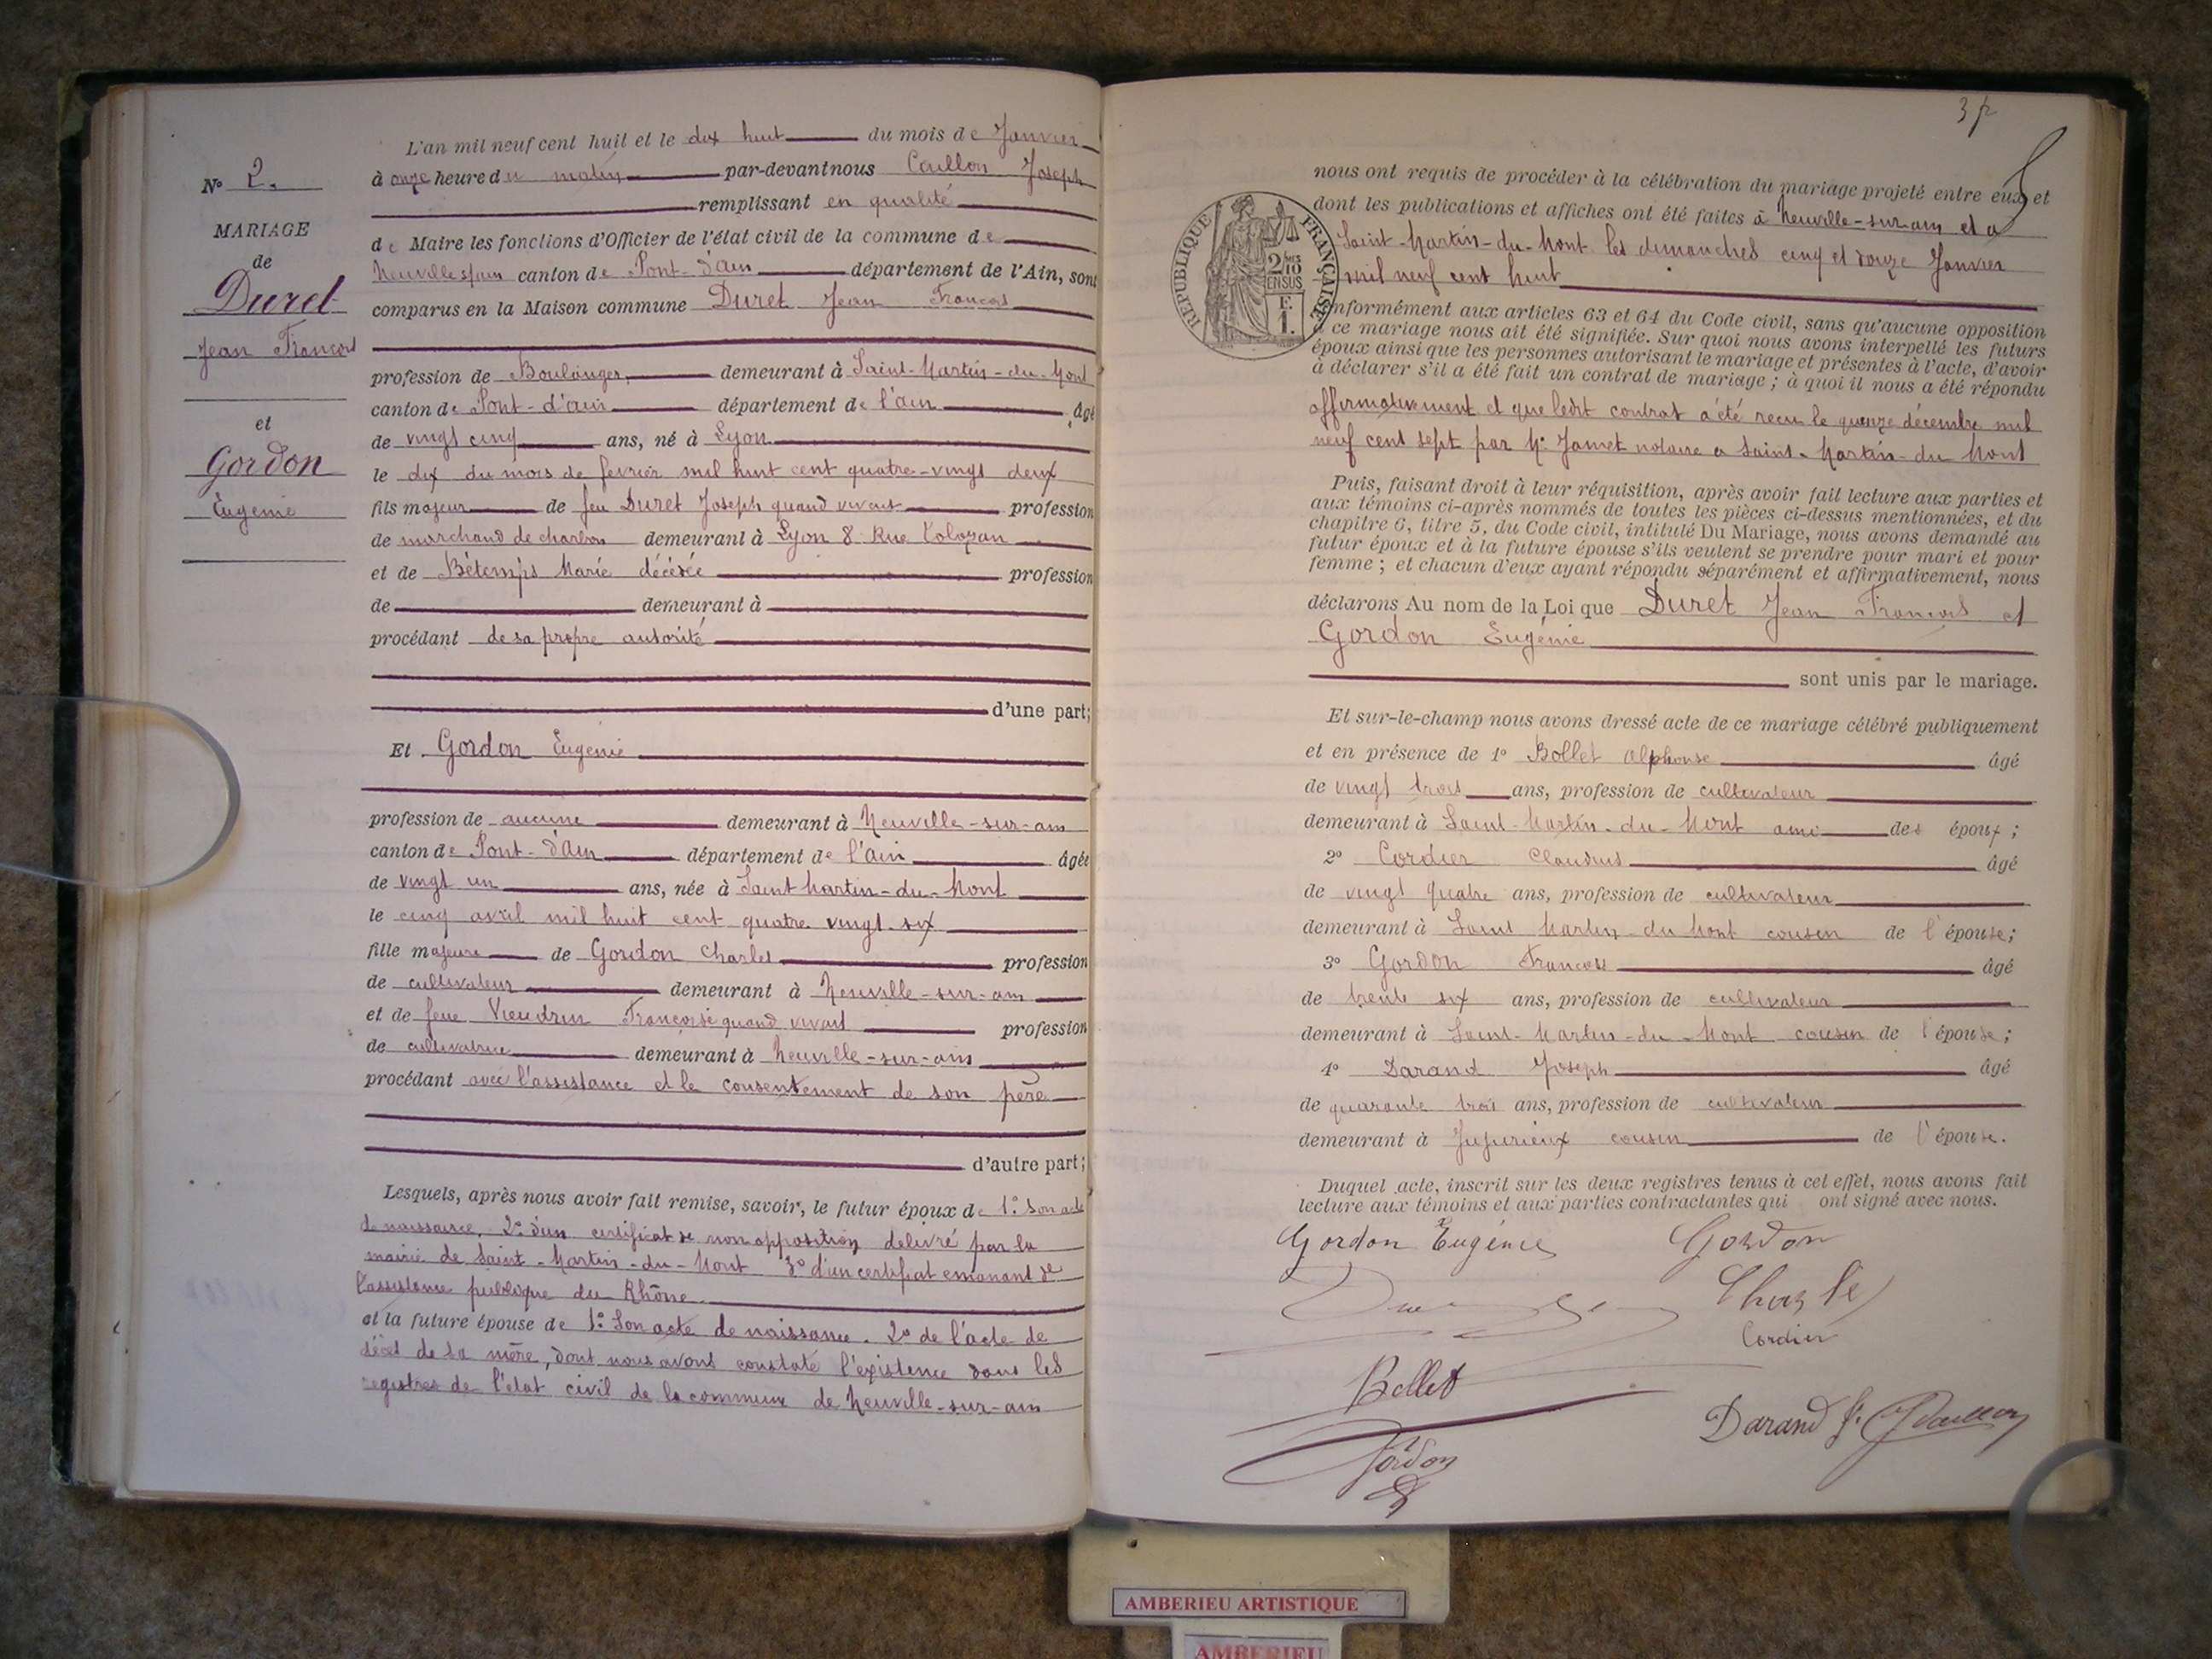 L'an mil neuf cent huit et le dix huit du mois de Janvier
à onze heure du matin par-devant nous Caullon Joseph
remplissant en qualité
de Maire les fonctions d'Officier de l'état civil de la commune de
Neuville s/ain canton de Pont-d'Ain département de l'Ain, sont
comparus en la Maison commune Duret Jean Francois
profession de Boulanger, demeurant à Saint-Martin-du-Mont
canton de Pont-d'ain département de l'ain âgé
de vingt cinq ans, né à Lyon
le dix du mois de fevrier mil huit cent quatre-vingt deux
fils majeur de feu Duret Joseph quand vivait profession
de marchand de charbon demeurant à Lyon 8 Rue Tolozan
et de Bétemps Marie décédée profession
de demeurant à
procédant de sa propre autorité
d'une part;
Et Gordon Eugenie
profession de aucune demeurant à Neuville-sur-ain
canton de Pont-d'Ain département de l'ain âgée
de vingt un ans, née à Saint Martin-du-Mont
le cinq avril mil huit cent quatre vingt-six
fille majeure de Gordon Charles profession
de cultivateur demeurant à Neuville-sur-ain
et de feue Vieudrin Françoise quand vivait profession
de cultivatrice demeurant à Neuville-sur-ain
procédant avec l'assistance et le consentement de son père
d'autre part;
Lesquels, après nous avoir fait remise, savoir, le futur époux de 1° Son acte
de naissance, 2° d'un certificat de non opposition delivré par la
mairie de Saint-Martin-du-Mont 3° d'un certificat emanant de
l'assistance publique du Rhône
et la future épouse de 1° Son acte de naissance. 2° de l'acte de
décès de sa mère, dont nous avons constaté l'existence dans les
registres de l'état civil de la commune de Neuville-sur-ain
N° 2.
MARIAGE
de
Duret
Jean Francois
et
Gordon
Eugenie
nous ont requis de procéder à la célébration du mariage projeté entre eux et
dont les publications et affiches ont été faites à Neuville-sur-ain et a
Saint-Martin-du-Mont les dimanches cinq et douze Janvier
mil neuf cent huit
REPUBLIQUE FRANÇAISE
2/10 EN SUS
F. 1.
conformément aux articles 63 et 64 du Code civil, sans qu'aucune opposition
à ce mariage nous ait été signifiée. Sur quoi nous avons interpellé les futurs
époux ainsi que les personnes autorisant le mariage et présentes à l'acte, d'avoir
à déclarer s'il a été fait un contrat de mariage; à quoi il nous a été répondu
affirmativement et que ledit contrat a été recu le quinze décembre mil
neuf cent sept par Me Jamet notaire a Saint-Martin-du Mont
Puis, faisant droit à leur réquisition, après avoir fait lecture aux parties et
aux témoins ci-après nommés de toutes les pièces ci-dessus mentionnées, et du
chapitre 6, titre 5, du Code civil, intitulé Du Mariage, nous avons demandé au
futur époux et à la future épouse s'ils veulent se prendre pour mari et pour
femme; et chacun d'eux ayant répondu séparément et affirmativement, nous
déclarons Au nom de la Loi que Duret Jean Francois et
Gordon Eugénie
sont unis par le mariage.
Et sur-le-champ nous avons dressé acte de ce mariage célébré publiquement
et en présence de 1° Bollet Alphonse âgé
de vingt trois ans, profession de cultivateur
demeurant à Saint-Martin-du-Mont ami des époux;
2° Cordier Claudius âgé
de vingt quatre ans, profession de cultivateur
demeurant à Saint Martin-du Mont cousin de l'épouse;
3° Gordon Francois âgé
de trente six ans, profession de cultivateur
demeurant à Saint-Martin-du-Mont cousin de l'épouse;
4° Darand Joseph âgé
de quarante trois ans, profession de cultivateur
demeurant à Jujurieux cousin de l'épouse.
Duquel acte, inscrit sur les deux registres tenus à cet effet, nous avons fait
lecture aux témoins et aux parties contractantes qui ont signé avec nous.
Gordon Eugénie
Gordon
Charle
Cordier
Bollet
Gordon
Darand J.
AMBERIEU ARTISTIQUE
AMBERIEU